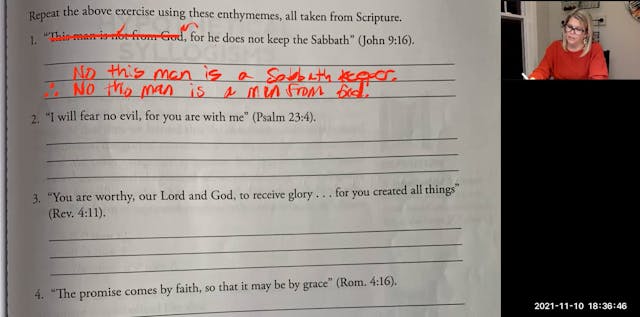 Repeat the above exercise using these enthymemes, all taken from Scripture.
1. "This man is not from God, for he does not keep the Sabbath" (John 9:16).
No this man is a Sabbath keeper.
∴ No this man is a man from God.
2. "I will fear no evil, for you are with me" (Psalm 23:4).
3. "You are worthy, our Lord and God, to receive glory . . . for you created all things"
(Rev. 4:11).
4. "The promise comes by faith, so that it may be by grace" (Rom. 4:16).
2021-11-10 18:36:46